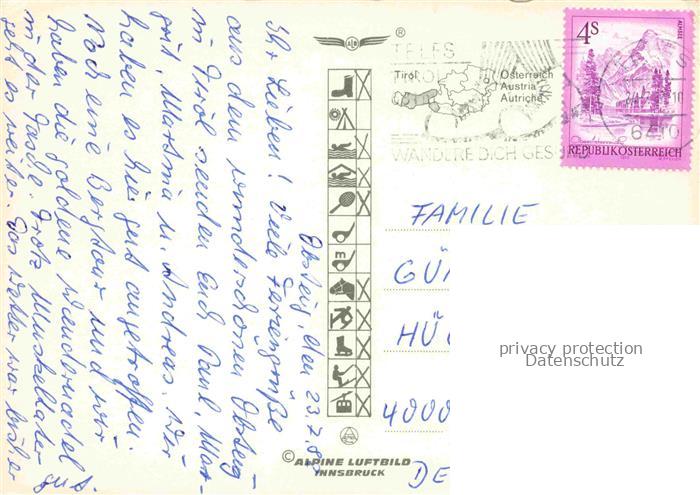 Obsteig, den 23.7.82
Ihr Lieben! Viele Feriengrüße
aus dem wunderschönen Obsteig
in Tirol senden Euch Paul, Mar-
grit, Martina u. Andreas. Wir
haben es hier gut angetroffen.
Noch eine Bergtour und wir
haben die goldene Wandernadel
in der Tasche. Trotz Muskelkater
geht es weiter. Das Wetter war bisher gut.
®
TELFS
Tirol
Österreich
Austria
Autriche
WANDERE DICH GES
4S
ALMSEE
REPUBLIK ÖSTERREICH
6410
m
FAMILIE
GÜ
HÜ
4000
DE
privacy protection
Datenschutz
© ALPINE LUFTBILD
INNSBRUCK